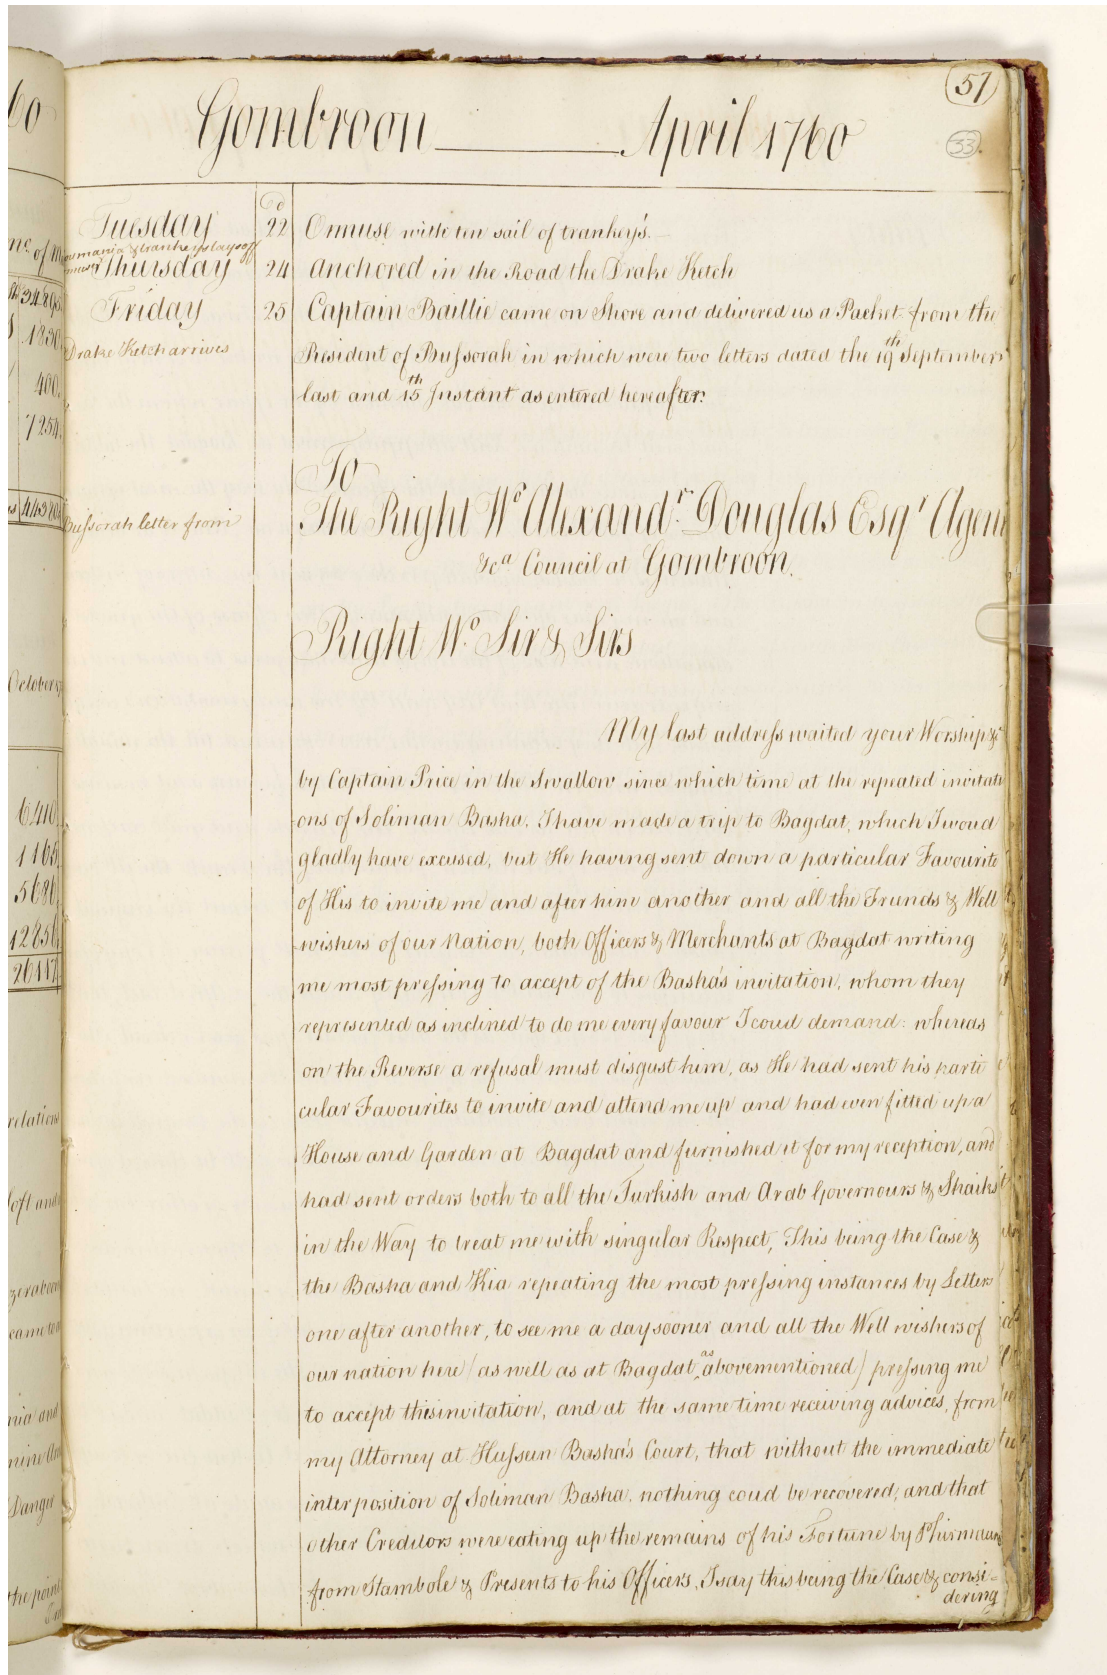 57
33.
Gombroon April 1760
Tuesday 22 Ormuse with ten sail of trankeys.
& trankeys lays off
Thursday 24 Anchored in the Road the Drake Ketch
Friday 25 Captain Baillie came on Shore and delivered us a Packet from the
Drake Ketch arrives
President of Bussorah in which were two letters dated the 19th September
last and 15th Instant as entered hereafter.
To
The Right Wo. Alexandr. Douglas Esqr Agent
&ca Council at Gombroon.
Bussorah letter from
Right Wo. Sir & Sirs
My last address waited your Worship &ca
by Captain Price in the Swallow since which time at the repeated invitati
ons of Soliman Basha. I have made a trip to Bagdat, which I woud
gladly have excused, but He having sent down a particular Favourite
of His to invite me and after him another and all the Friends & Well
wishers of our Nation, both Officers & Merchants at Bagdat writing
me most pressing to accept of the Basha's invitation, whom they
represented as inclined to do me every favour I coud demand: whereas
on the Reverse a refusal must disgust him, as He had sent his parti
cular Favourites to invite and attend me up and had even fitted up a
House and Garden at Bagdat and furnished it for my reception, and
had sent orders both to all the Turkish and Arab Governours & Shaiks
in the Way to treat me with singular Respect, This being the Case &
the Basha and Kia repeating the most pressing instances by Letters
one after another, to see me a day sooner and all the Well wishers of
our nation here (as well as at Bagdat as abovementioned) pressing me
to accept this invitation, and at the same time receiving advices, from
my Attorney at Hussein Basha's Court, that without the immediate
interposition of Soliman Basha. nothing coud be recovered, and that
other Creditors were eating up the remains of his Fortune by Phirmauns
from Stambole & Presents to his Officers, I say this being the Case & consi-
dering